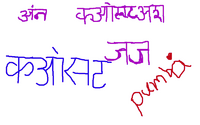 अंन कओसटअश
कओसट जज
pumba